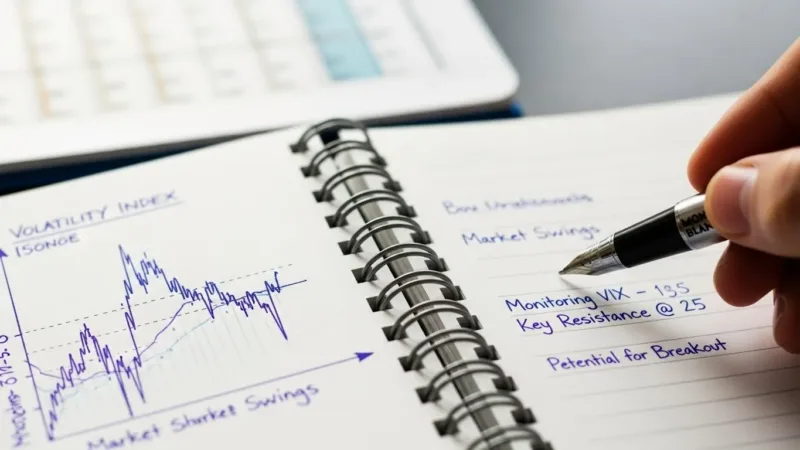 VOLATILITY INDEX
ISONGE
Market Swings
Market Swings
Monitoring VIX – 135
Key Resistance @ 25
Potential for Breakout
MON
BLAN